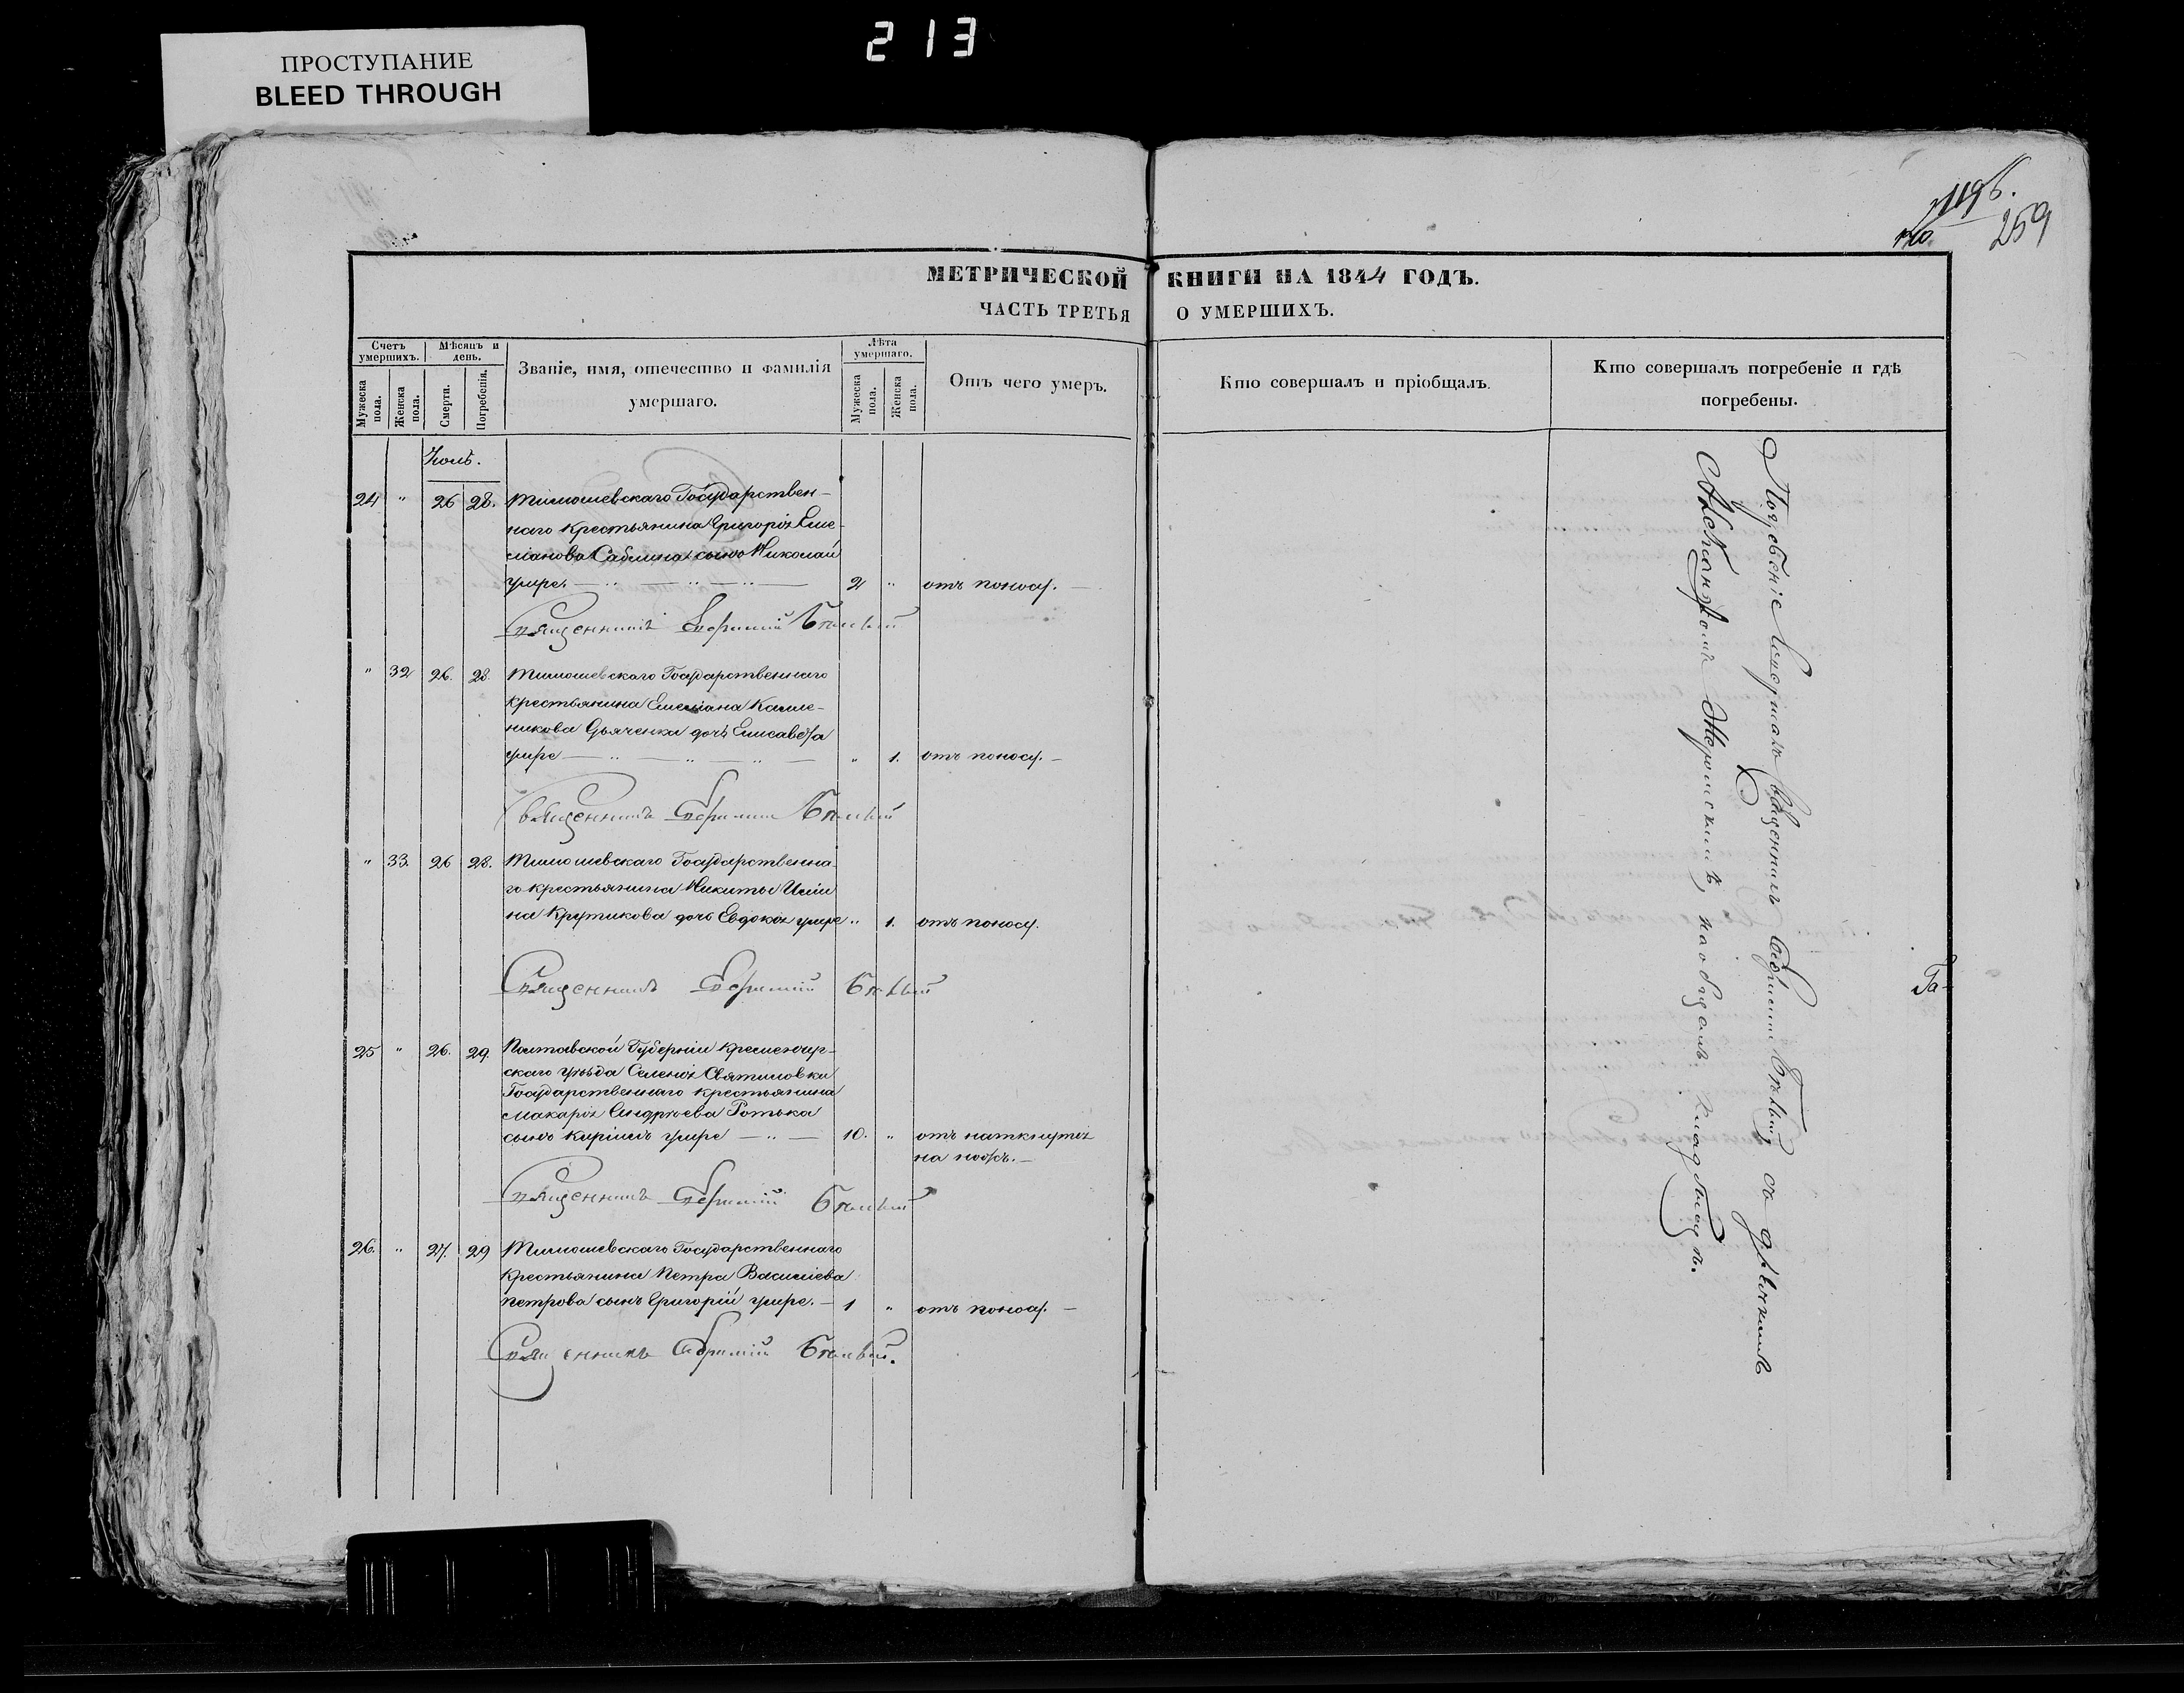 213
ПРОСТУПАНИЕ
BLEED THROUGH
259
МЕТРИЧЕСКОЙ КНИГИ НА 1844 ГОДЪ.
ЧАСТЬ ТРЕТЬЯ О УМЕРШИХЪ.
Счетъ умершихъ.
Мужеска пола.
Женска пола.
Мѣсяцъ и день.
Смерти.
Погребенія.
Званіе, имя, отечество и фамилія
умершаго.
Лѣта умершаго.
Мужеска пола.
Женска пола.
Отъ чего умеръ.
Кто совершалъ и пріобщалъ.
Кто совершалъ погребеніе и гдѣ
погребены.
24 " 26 28. Тимошевскаго Государствен-
наго крестьянина Григорія Еме-
ліанова сынъ Николай
умре. 2 " отъ поносу.
Священникъ Ефримій
" 32 26. 28 Тимошевскаго Государственнаго
крестьянина Емеліана
Дьяченка дочь Елисавета
умре " 1. отъ поносу.
Священникъ Ефримій
" 33. 26 28. Тимошевскаго Государственна-
го крестьянина Никиты
Крутикова дочь Евдокія умре " 1. отъ поносу.
Священникъ Ефримій
25 " 26. 29. Полтавской Губерніи Кременчуг-
скаго уѣзда Селенія Святиловки
Государственнаго крестьянина
Макарія Андрѣева
сынъ Кирилъ умре 10. " отъ
на ножъ.
Священникъ Ефримій
26. " 27. 29 Тимошевскаго Государственнаго
крестьянина Петра Василіева
Петрова сынъ Григорій умре. 1 " отъ поносу.
Священникъ Ефримій
Погребеніе совершалъ Священникъ Ефримій Бѣлый, съ дьячкомъ
Александромъ на общемъ кладбищѣ.
Га-